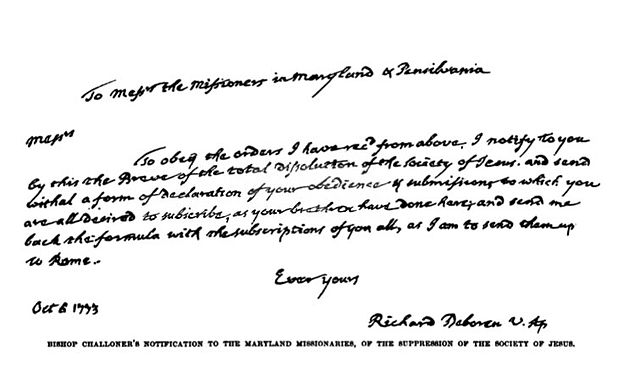 To Messrs the Missioners in Maryland & Pensilvania
Messrs
To obey the orders I have recd from above, I notify to you
by this the Breve of the total dissolution of the Society of Jesus. and send
withal a form of declaration of your obedience & submission; to which you
are all desired to subscribe, as your brethren have done here; and send me
back the formula with the subscriptions of you all, as I am to send them up
to Rome.
Ever yours
Oct 6 1773
Richard Deboren V. Ap
BISHOP CHALLONER'S NOTIFICATION TO THE MARYLAND MISSIONARIES, OF THE SUPPRESSION OF THE SOCIETY OF JESUS.